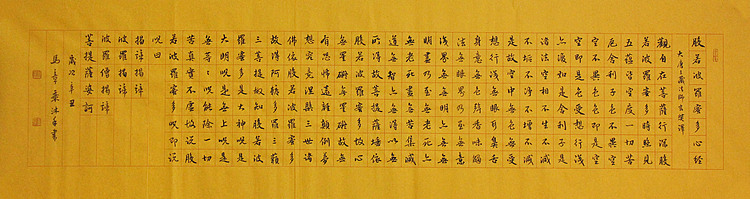 般若波羅蜜多心經
大唐三藏法師玄奘譯
觀自在菩薩行深般
若波羅蜜多時照見
五蘊皆空度一切苦
厄舍利子色不異空
空不異色色即是空
空即是色受想行識
亦復如是舍利子是
諸法空相不生不滅
不垢不淨不增不減
是故空中無色無受
想行識無眼耳鼻舌
身意無色聲香味觸
法無眼界乃至無意
識界無無明亦無無
明盡乃至無老死亦
無老死盡無苦集滅
道無智亦無得以無
所得故菩提薩埵依
般若波羅蜜多故心
無罣礙無罣礙故無
有恐怖遠離顛倒夢
想究竟涅槃三世諸
佛依般若波羅蜜多
故得阿耨多羅三藐
三菩提故知般若波
羅蜜多是大神咒是
大明咒是無上咒是
無等〻咒能除一切
苦真實不虛故說般
若波羅蜜多咒即說
咒曰
揭諦揭諦
波羅揭諦
波羅僧揭諦
菩提薩婆訶
歲次辛丑
馬 沐手書